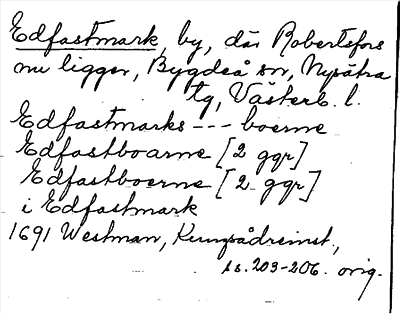 Edfastmark, by, där Robertsfors
nu ligger, Bygdeå sn, Nysätra
tg, Västerb. l.
Edfastmarks --- boerne
Edfastboarne [2 ggr]
Edfastboerne [2 ggr]
i Edfastmark
1691 Westman, Kungsådreinst.,
ss. 203-206. orig.